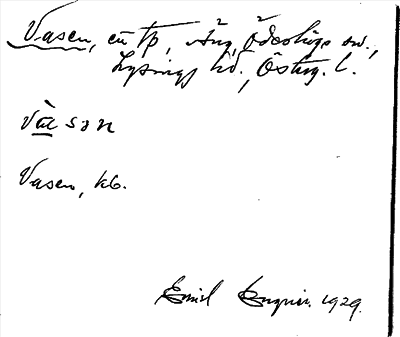 Vasen, en tp, Äng, Ödeshögs sn.,
Lysings hd., Östrg. l.
vàsən
Vasen, kb.
Emil 1929.